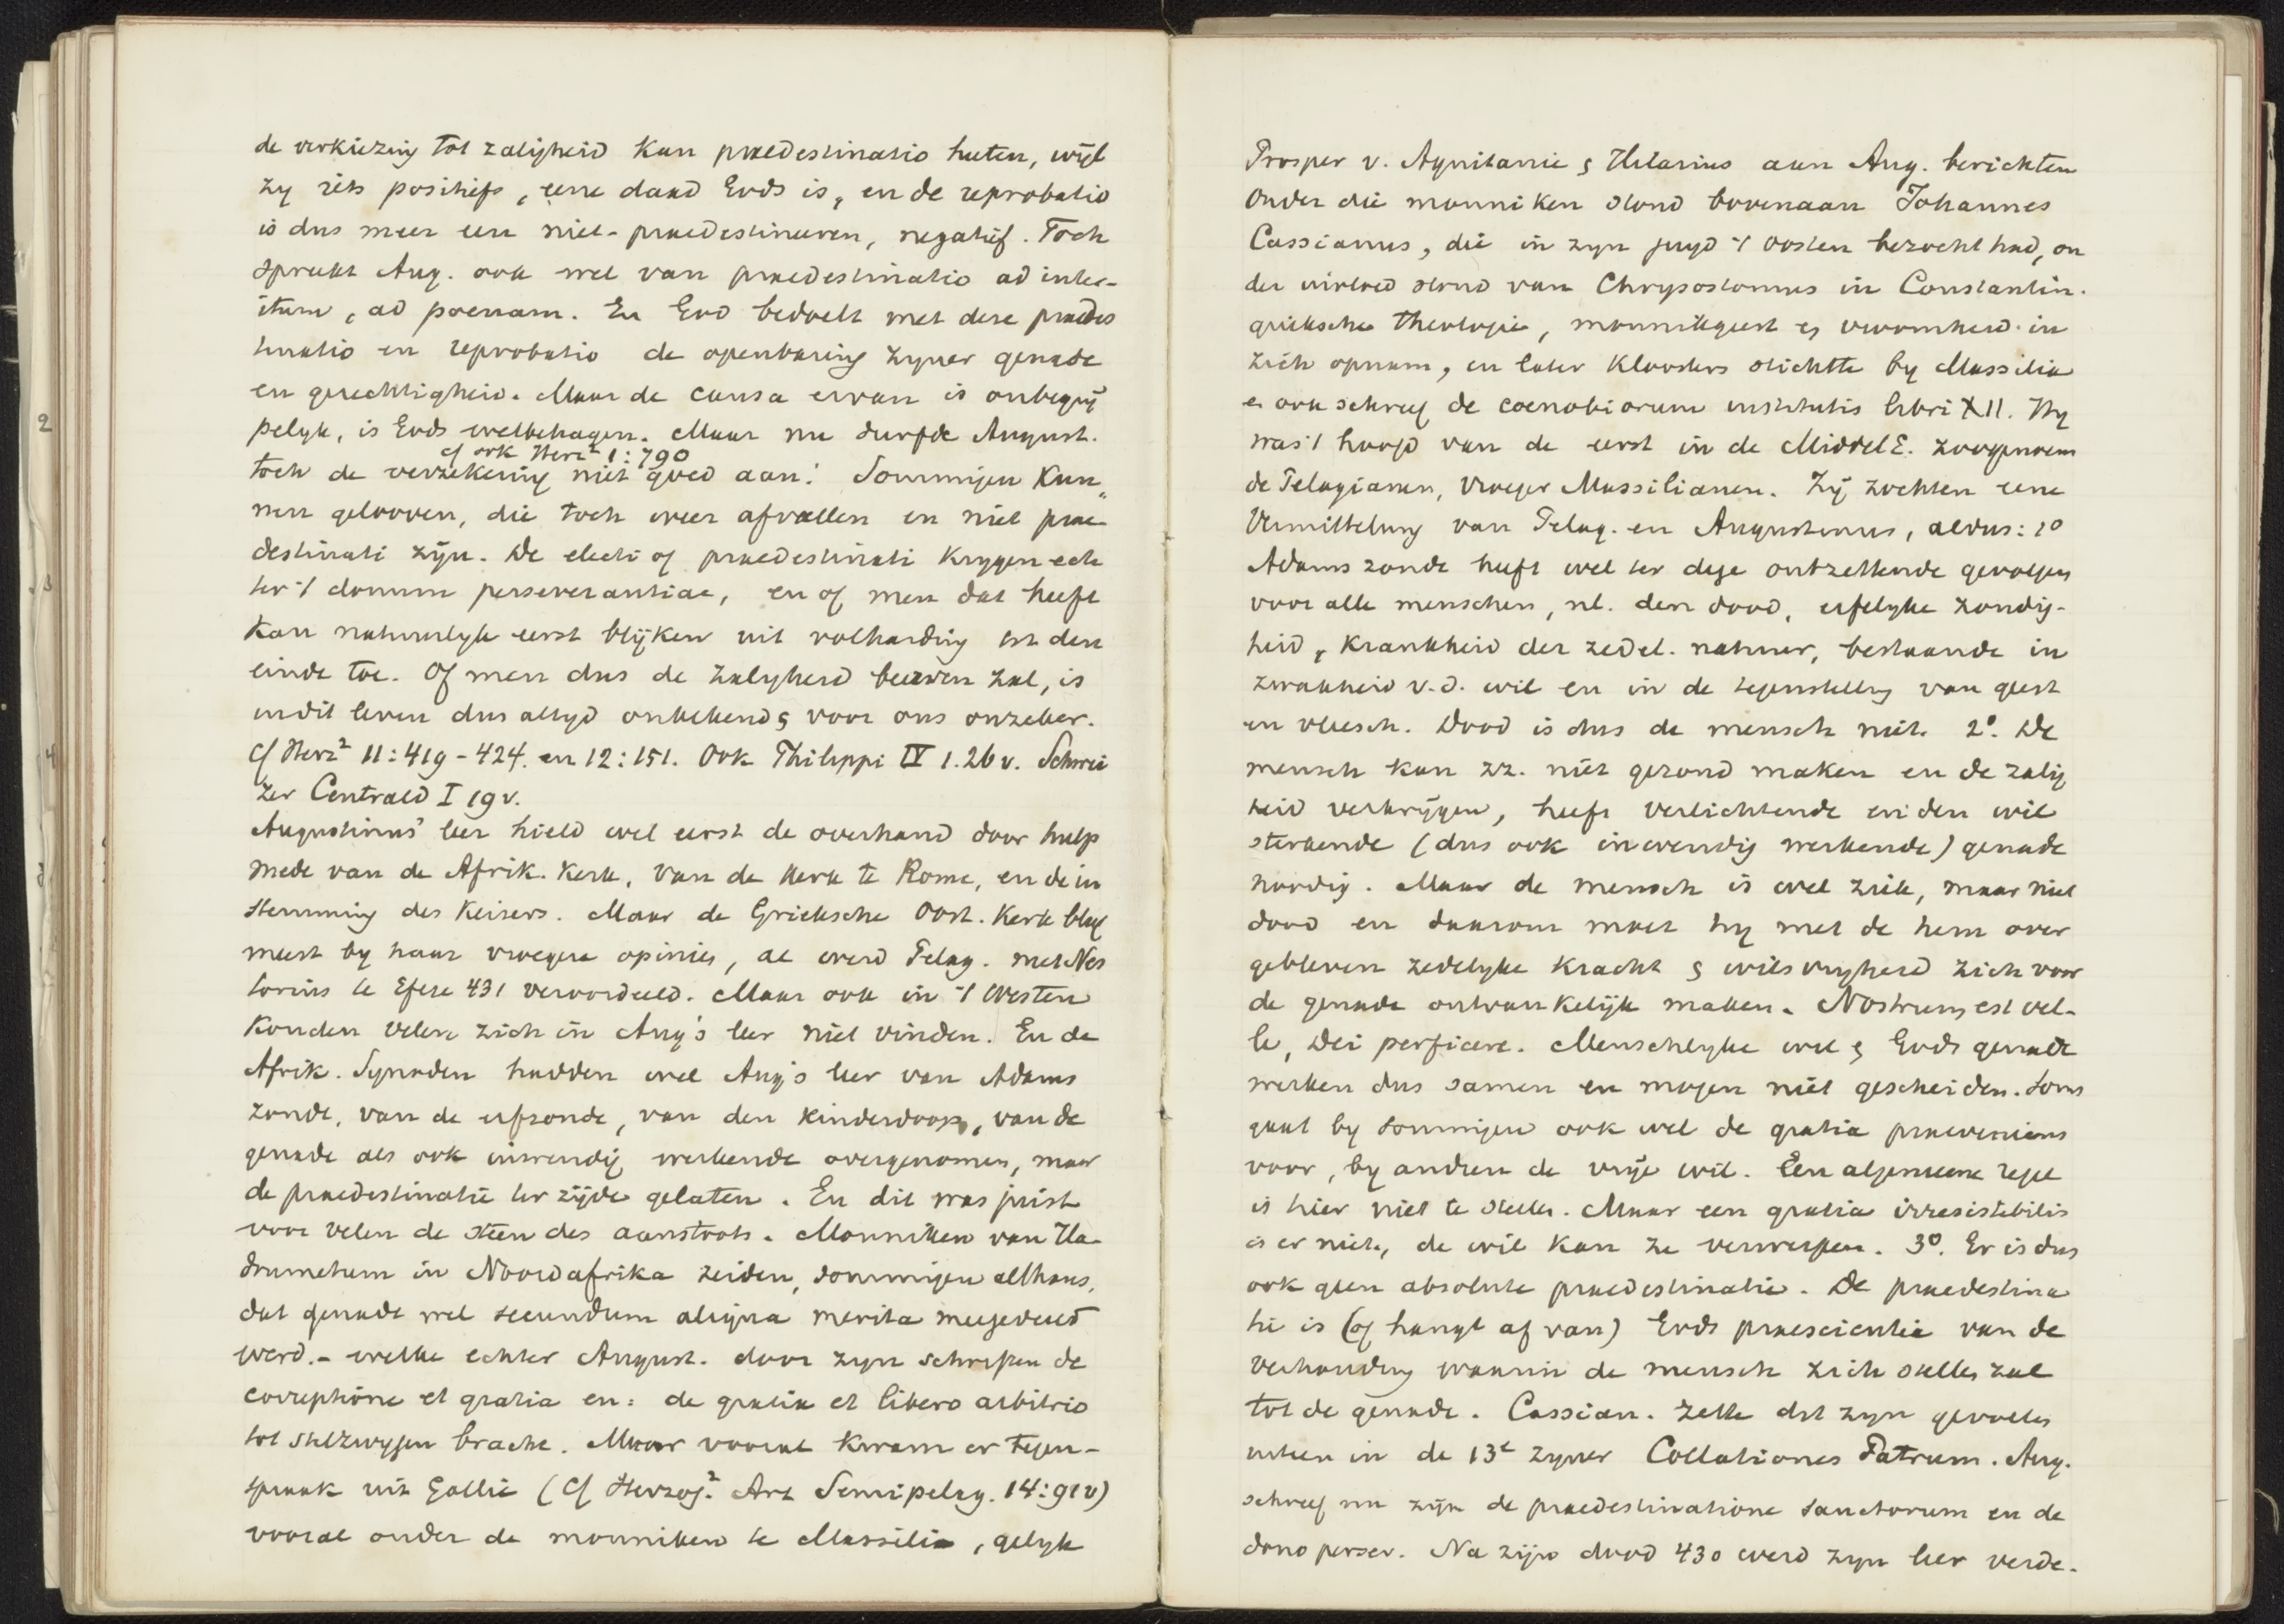 de verkiezing tot zaligheid kan praedestinatio heeten, wijl
zy iets positiefs, eene daad Gods is, en de reprobatio
is dus meer een niet-praedestineeren, negatief. Toch
spreekt Aug. ook wel van praedestinatio ad inter-
itum, ad poenam. En God bedoelt met deze praedes
tinatio en reprobatio de openbaring zyner genade
en gerechtigheid. Maar de causa ervan is onbegrij
pelyk, is Gods welbehagen. Maar nu durfde August.
cf ook Herz² 1:790
toch de verzekering niet goed aan: Sommigen kun„
nen gelooven, die toch weer afvallen en niet prae-
destinati zijn. De electi of praedestinati krygen ech
ter 't donum perseverantiae, en of men dat heeft
kan natuurlyk eerst blijken uit volharding tot den
einde toe. Of men dus de zaligheid beerven zal, is
in dit leven dus altyd onbekend & voor ons onzeker.
Cf Herz² 11:419-424. en 12:151. Ook Philippi IV 1.26v. Schwei
zer Centrald I 19v.
Augustinus' leer hield wel eerst de overhand door hulp
mede van de Afrik. Kerk, van de Kerk te Rome, en de in
stemming des Keisers. Maar de Grieksche Oost. Kerk bleef
meest by haar vroegere opinies, al werd Pelag. met Nes
torius te Efeze 431 veroordeeld. Maar ook in 't Westen
konden velen zich in Aug's leer niet vinden. En de
Afrik. Synoden hadden wel Aug's leer van Adams
zonde, van de erfzonde, van den kinderdoop, van de
genade als ook inwendig werkende overgenomen, maar
de praedestinatie ter zijde gelaten. En dit was juist
voor velen de steen des aanstoots. Monniken van Ha-
drumetum in Noordafrika zeiden, sommigen althans,
dat genade wel secundum aliqua merita meegedeeld
werd. - welke echter August. door zyn schriften de
correptione et gratia en: de gratia et libero arbitrio
tot stilzwygen bracht. Maar vooral kwam er tegen-
spraak uit Gallië (Cf Herzog² Art Semipelag. 14:91v)
vooral onder de monniken te Massilia, gelyk
Prosper v. Aquitanie & Hilarius aan Aug. berichten
Onder die monniken stond bovenaan Johannes
Cassianus, die in zyn jeugd 't Oosten bezocht had, on
der invloed stond van Chrysostomus in Constantin.
grieksche theologie, monnikgeest & vroomheid in
zich opnam, en later kloosters stichtte by Massilia
en ook schreef de coenobiorum institutis libri XII. Hy
was 't hoofd van de eerst in de MiddelE. zoogenoem
de Pelagianen, vroeger Massilianen. Zij zochten eene
Vermitteling van Pelag. en Augustinus, aldus: 1º
Adams zonde heeft wel ter dege ontzettende gevolgen
voor alle menschen, nl. den dood, erfelyke zondig-
heid, krankheid der zedel. natuur, bestaande in
zwakheid v.d. wil en in de tegenstelling van geest
en vleesch. Dood is dus de mensch niet. 2º. De
mensch kan zz. niet gezond maken en de zalig
heid verkrijgen, heeft verlichtende en den wil
sterkende (dus ook inwendig werkende) genade
noodig. Maar de mensch is wel ziek, maar niet
dood en daarom moet hy met de hem over
gebleven zedelyke kracht & wilsvryheid zich voor
de genade ontvankelijk maken. Nostrum est vel-
le, Dei perficere. Menschlyke wil & Gods genade
werken dus samen en mogen niet gescheiden. Soms
gaat by sommigen ook wel de gratia praeveniens
voor, by andren de vrije wil. Een algemeene regel
is hier niet te stellen. Maar een gratia irresistibilis
is er niet, de wil kan ze verwerpen. 3º. Er is dus
ook geen absolute praedestinatie. De praedestina
tie is (of hangt af van) Gods praescientie van de
verhouding waarin de mensch zich stellen zal
tot de genade. Cassian. zette dit zyn gevoelen
uiteen in de 13e zyner Collationes Patrum. Aug.
schreef nu zijn de praedestinatione sanctorum en de
dono persev. Na zijn dood 430 werd zyn leer verde-